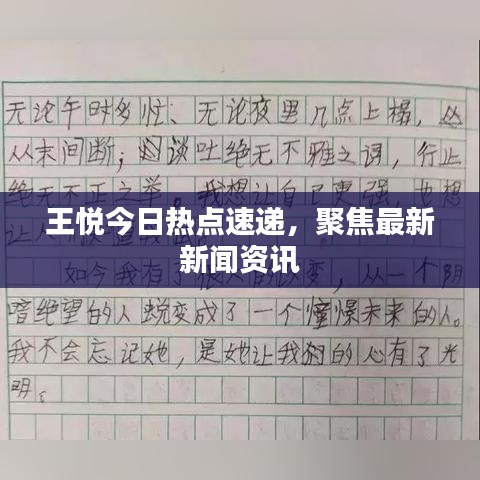 无论午时多忙、无论夜里几点上榻,
从未间断;谈吐绝无不雅之词,行止
绝无不正之举。我想让自己更强,也想
让人
王悦今日热点速递,聚焦最新
新闻资讯
如今我有了很大的改变,从一个阴
暗绝望的人蜕变成了一个憧憬未来的人。
我不会忘记她,是她让我的心有了光
明。